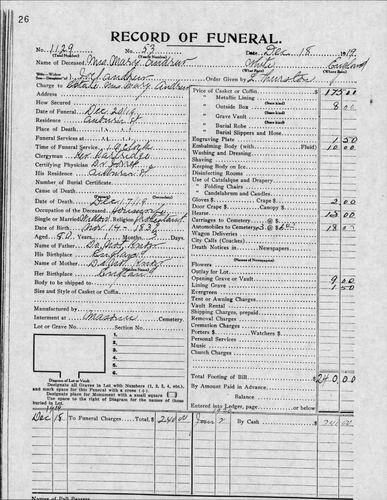 26
RECORD OF FUNERAL.
No. 1129 No. 53 Date, Dec 18 1919
(Total Number) (Yearly Number)
Name of Deceased, Mrs. Mary Andrew White England
(What Race) (Where Born)
Widow Joel Andrew Order Given by L Thurston
Charge to Estate Mrs. Mary Andrew
Address
How Secured
Date of Funeral Dec 20/19
Residence
Place of Death
Time of Funeral Service 1 o'clock
Clergyman Rev.
Certifying Physician Dr.
His Residence
Number of Burial Certificate
Cause of Death
Date of Death Dec 17 19
Occupation of the Deceased Housewife
Single or Married Widow Religion Protestant
Date of Birth Nov. 14 - 1839
Aged 80 Years, Months, 3 Days
Name of Father
His Birthplace England
Name of Mother
Her Birthplace England
Body to be shipped to
Size and Style of Casket or Coffin
Manufactured by
Interment at Cemetery
Lot or Grave No. Section No.
1 2 3 4 5 6
Diagram of Lot or Vault
Designate all Graves in Lot with Numbers (1, 2, 3, 4, etc.), and mark space for this Funeral with a cross
Designate place for Monument with a small square
Use space to right of Diagram for the names of those buried in Lot.
Price of Casket or Coffin 175 00
" Metallic Lining
" Outside Box 8 00
" Grave Vault
" Burial Robe
" Burial Slippers and Hose
Engraving Plate 1 50
Embalming Body (with Fluid) 10 00
Washing and Dressing
Shaving
Keeping Body on Ice
Disinfecting Rooms
Use of Catafalque and Drapery
" Folding Chairs
" Candelabrum and Candles
Gloves 2 00
Door Crape Canopy
Hearse 15 00
Carriages to Cemetery
Automobiles to Cemetery 3 @ $6.00 18 00
Wagon Deliveries
City Calls (Coaches)
Death Notices in Newspapers
(Names of Newspapers)
Flowers
Outlay for Lot
Opening Grave or Vault 9 00
Lining Grave 1 50
Evergreen
Tent or Awning Charges
Vault Rental
Shipping Charges, prepaid
Removal Charges
Cremation Charges
Porters Watchers
Personal Service
Music
Church Charges
Total Footing of Bill 240.00
By Amount Paid in Advance
Balance
Entered into Ledger, page or below
1919
Dec 18 To Funeral Charges Total, $ 240 00 By Cash 240 00
Names of Pall Bearers